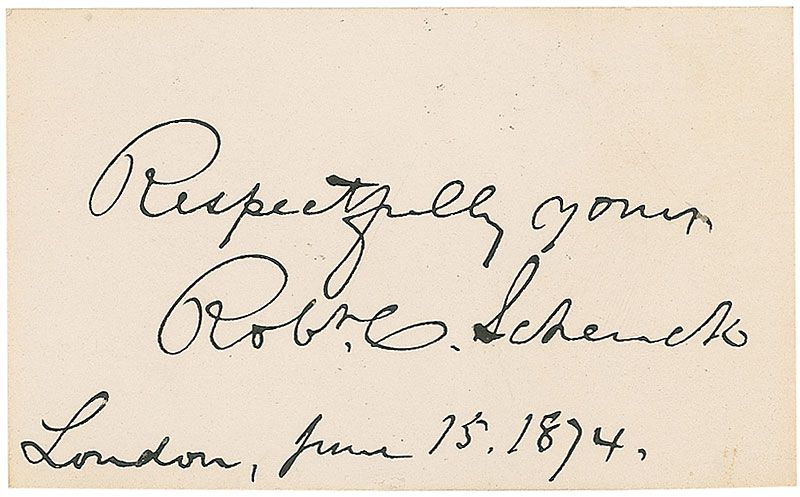 Respectfully yours
Robt. C. Schenck
London, June 15. 1874.